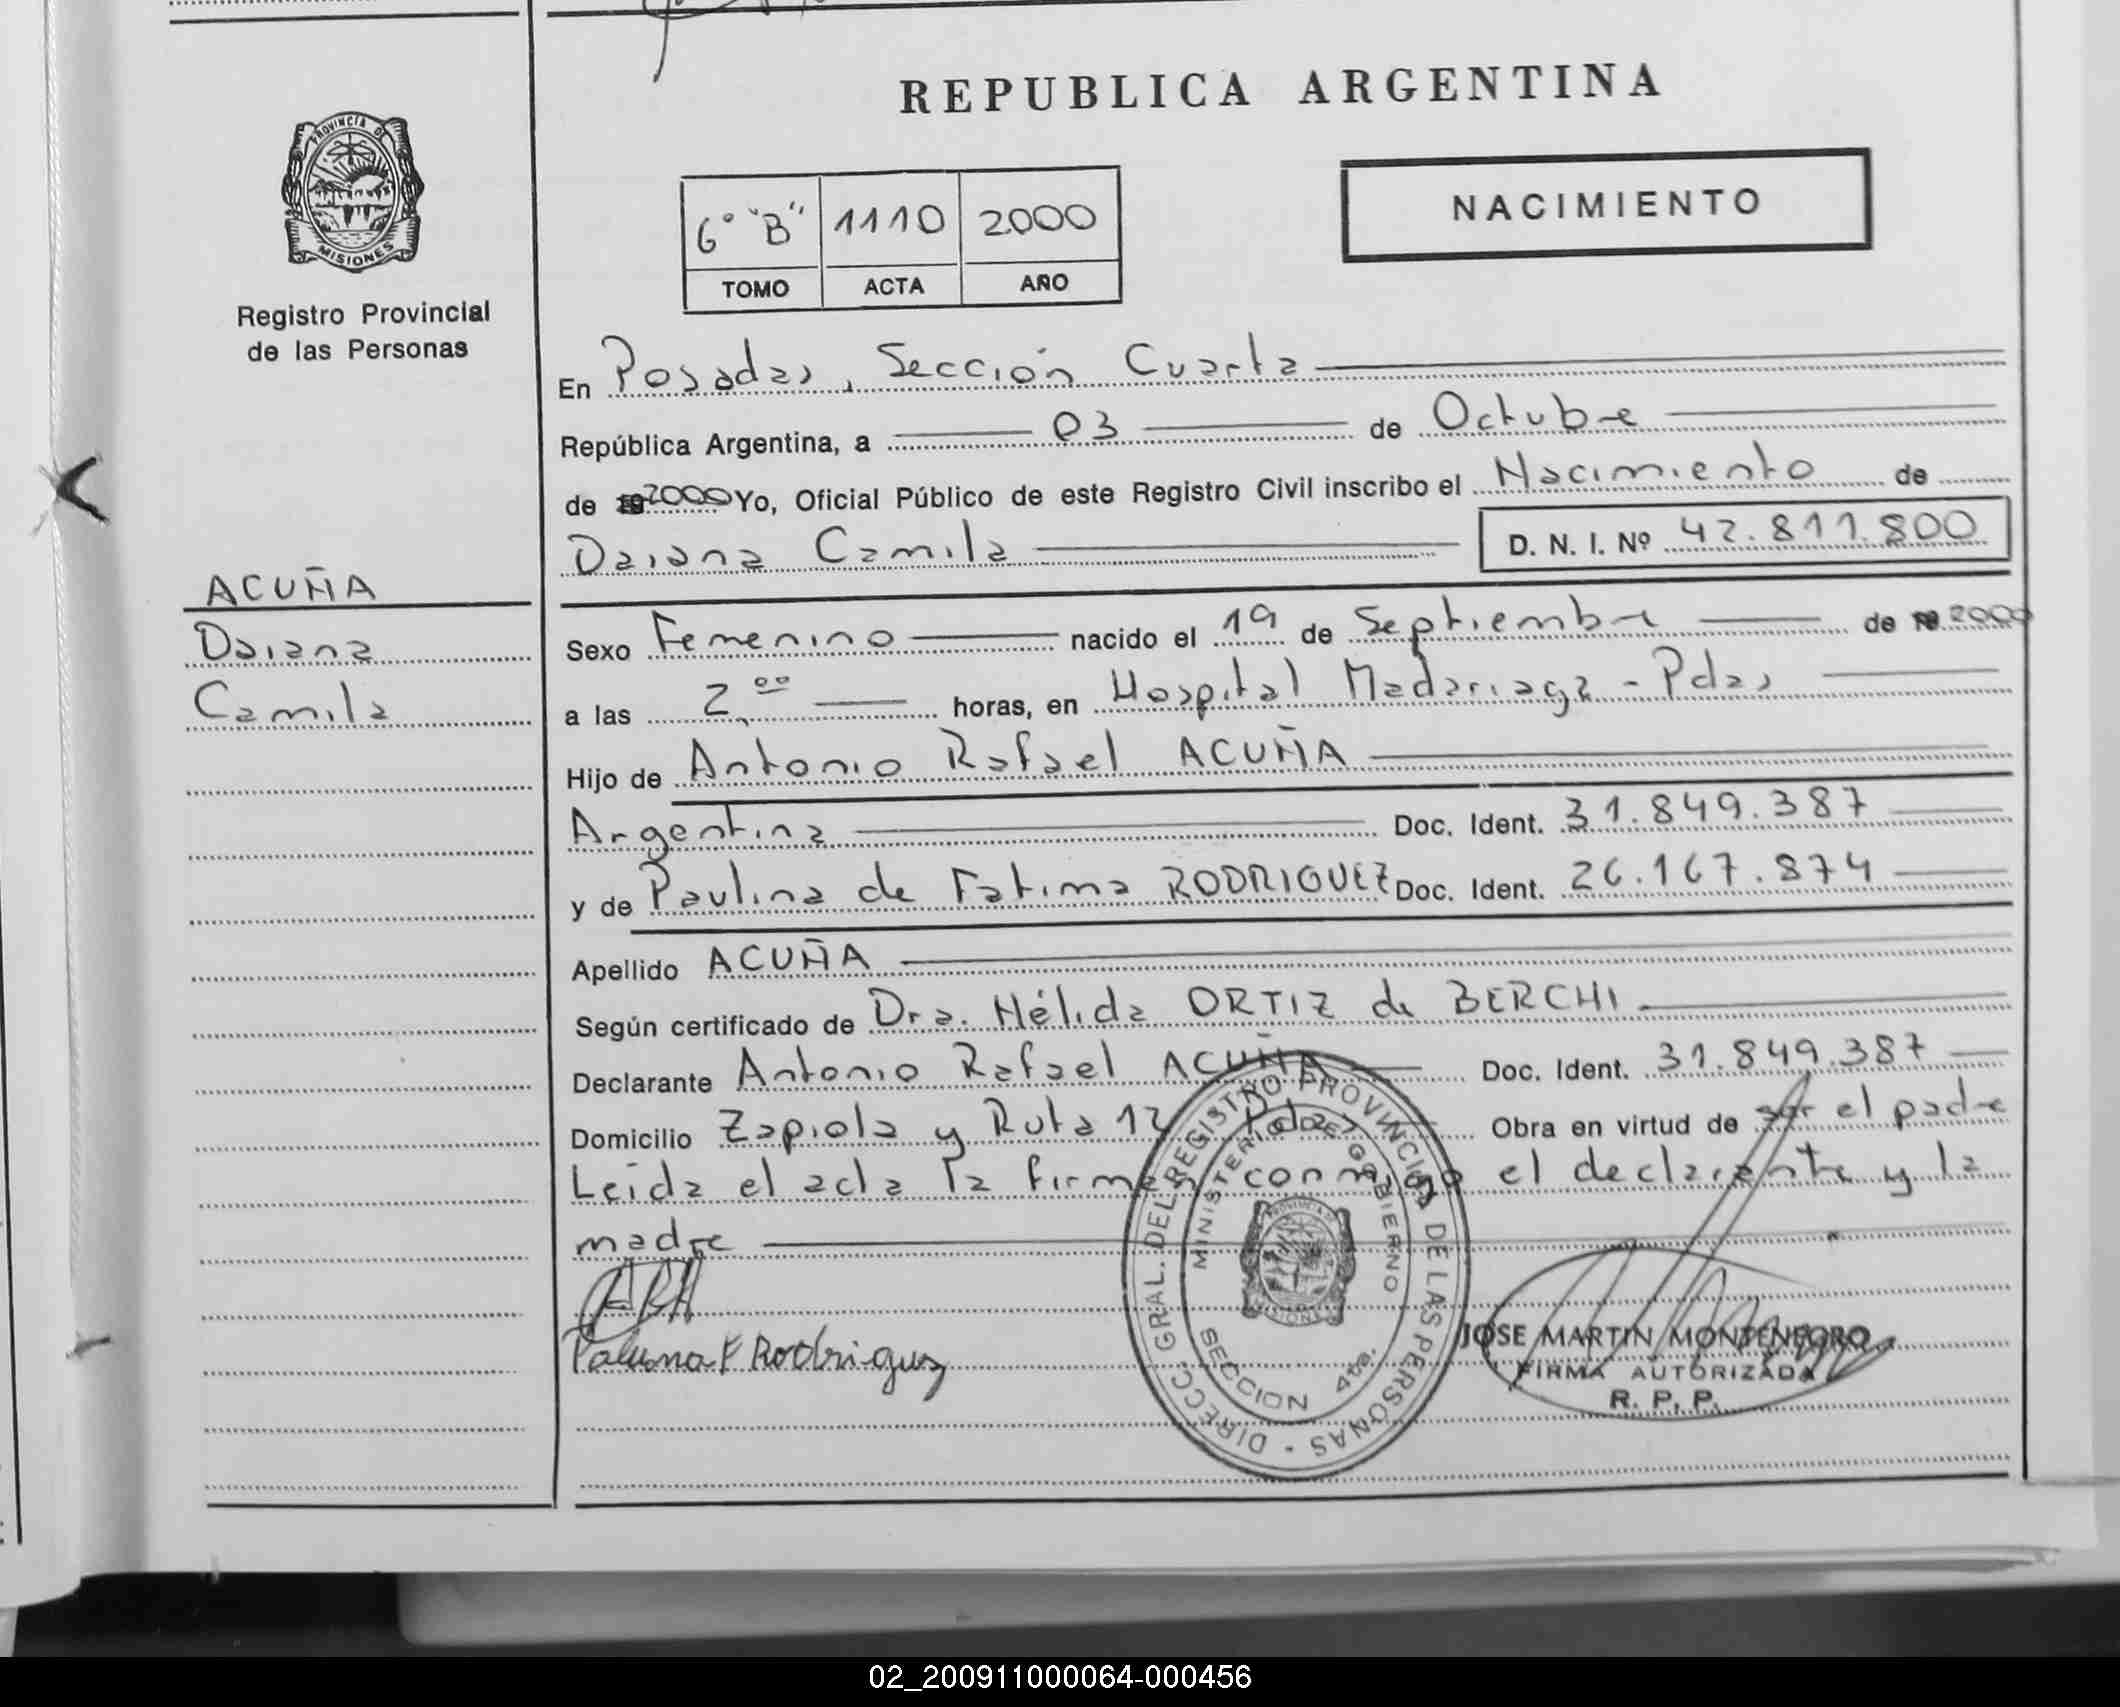 REPUBLICA ARGENTINA
PROVINCIA DE
MISIONES
Registro Provincial
de las Personas
NACIMIENTO
6° "B" 1110 2000
TOMO ACTA AÑO
En Posadas, Sección Cuarta
República Argentina, a 03 de Octubre
de 19 2000 Yo, Oficial Público de este Registro Civil inscribo el Nacimiento de
Daiana Camila D. N. I. Nº 42.811.800
ACUÑA
Daiana
Camila
Sexo Femenino nacido el 19 de Septiembre de 19 2000
a las 2,00 horas, en Hospital Madariaga - Pdas
Hijo de Antonio Rafael ACUÑA
Argentina Doc. Ident. 31.849.387
y de Paulina de Fatima RODRIGUEZ Doc. Ident. 26.167.874
Apellido ACUÑA
Según certificado de Dra. Hélida ORTIZ de BERCHI
Declarante Antonio Rafael ACUÑA Doc. Ident. 31.849.387
Domicilio Zapiola y Ruta 12 Pdas Obra en virtud de ser el padre
Leida el acta la firman conmigo el declarante y la
madre
DIRECC. GRAL. DEL REGISTRO PROVINCIAL DE LAS PERSONAS
MINISTERIO DE GOBIERNO
SECCION 4ta.
ARA
F Rodriguez
JOSE MARTIN MONTENEGRO
FIRMA AUTORIZADA
R. P. P.
02_200911000064-000456